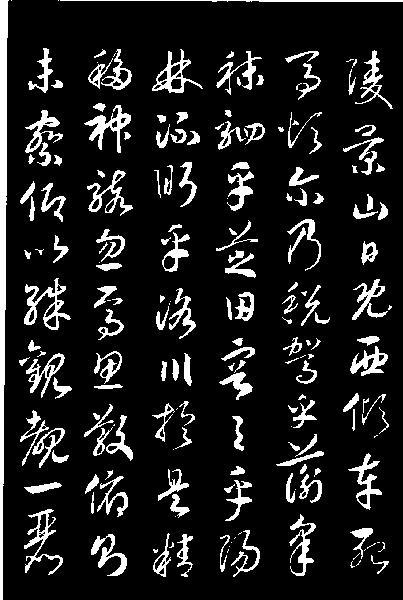 陵景山日既西傾車殆
馬煩尔乃税駕乎蘅皋
秣駟乎芝田容與乎陽
林流眄乎洛川於是精
移神駭忽焉思散俯則
未察仰以殊觀覩一麗